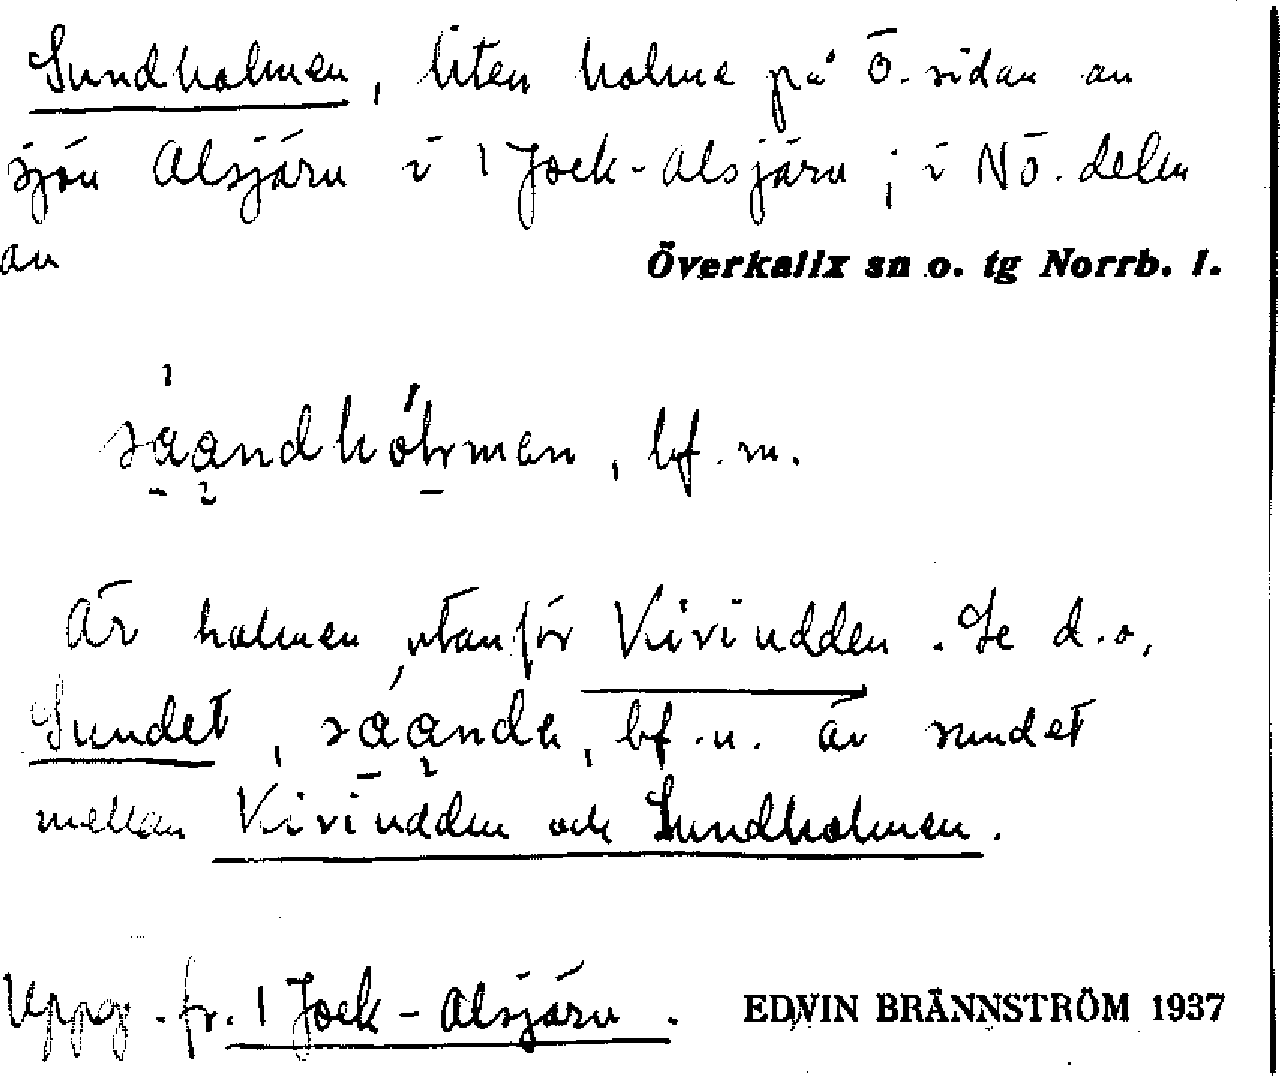 Sundholmen, liten holme på ö. sidan av
sjön Alsjärv i 1 Jock-Alsjärv; i NÖ. delen
av
Överkalix sn o. tg Norrb. l.
, bf. m.
Är holmen utanför Kiviudden. Se d.o.
Sundet, , bf. n. är sundet
mellan Kiviudden och Sundholmen.
Uppg. fr. 1 Jock-Alsjärv.
EDVIN BRÄNNSTRÖM 1937